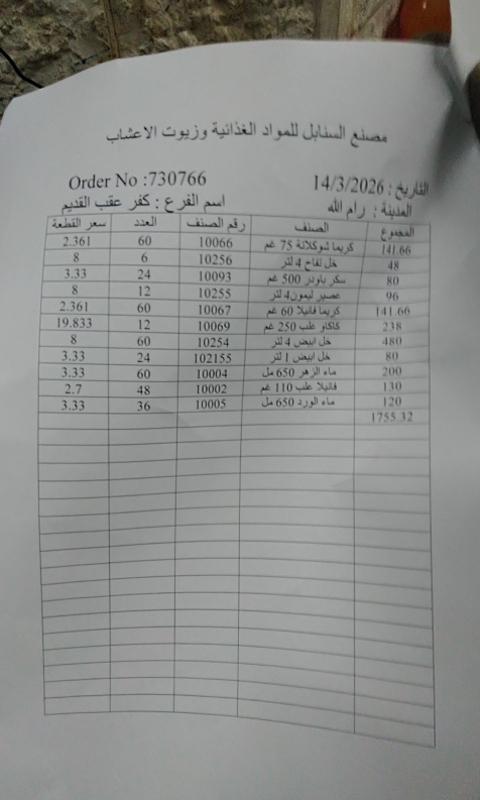 مصنع السنابل للمواد الغذائية وزيوت الاعشاب
التاريخ : 14/3/2026 Order No :730766
المدينة : رام الله اسم الفرع : كفر عقب القديم
المجموع الصنف رقم الصنف العدد سعر القطعة
141.66 كريما شوكلاتة 75 غم 10066 60 2.361
48 خل تفاح 4 لتر 10256 6 8
80 سكر باودر 500 غم 10093 24 3.33
96 عصير ليمون 4 لتر 10255 12 8
141.66 كريما فانيلا 60 غم 10067 60 2.361
238 كاكاو علب 250 غم 10069 12 19.833
480 خل ابيض 4 لتر 10254 60 8
80 خل ابيض 1 لتر 102155 24 3.33
200 ماء الزهر 650 مل 10004 60 3.33
130 فانيلا علب 110 غم 10002 48 2.7
120 ماء الورد 650 مل 10005 36 3.33
1755.32